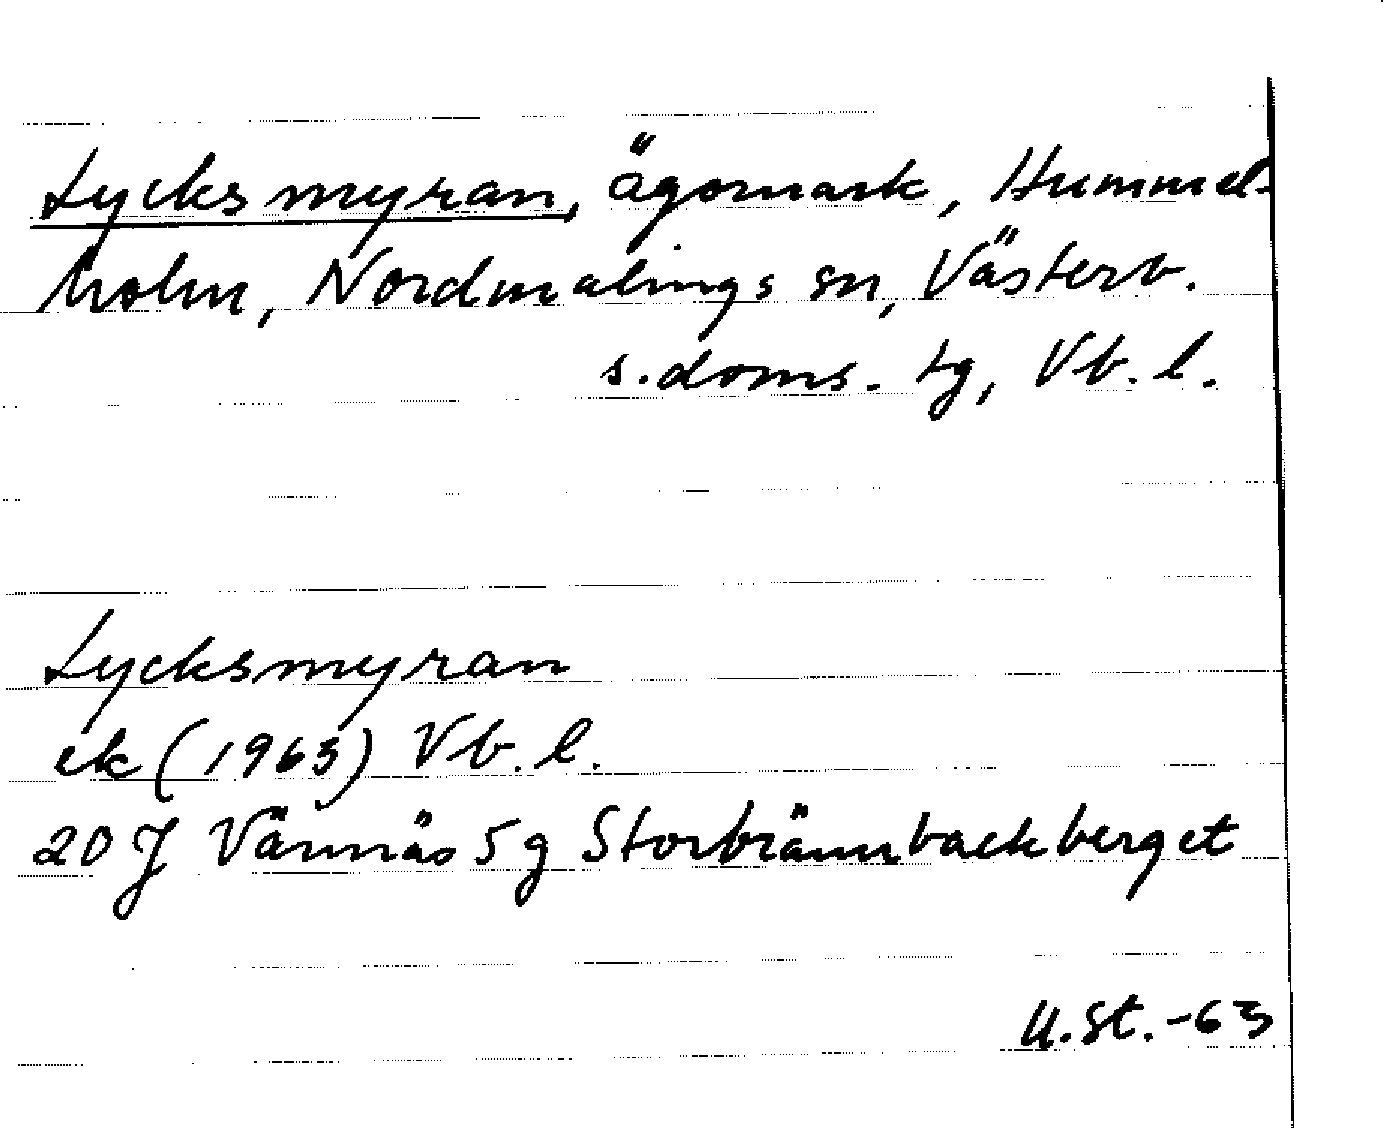 Lycksmyran, ägomark, Hummel-
holm, Nordmalings sn, Västerb.
s. doms. tg, Vb. l.
Lycksmyran
ek (1963) Vb. l.
20 J Vännäs 5 g Storbrännbackberget
U. St. -63